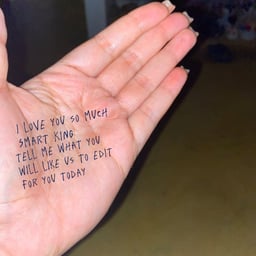 I LOVE YOU SO MUCH
SMART KING
TELL ME WHAT YOU
WILL LIKE US TO EDIT
FOR YOU TODAY